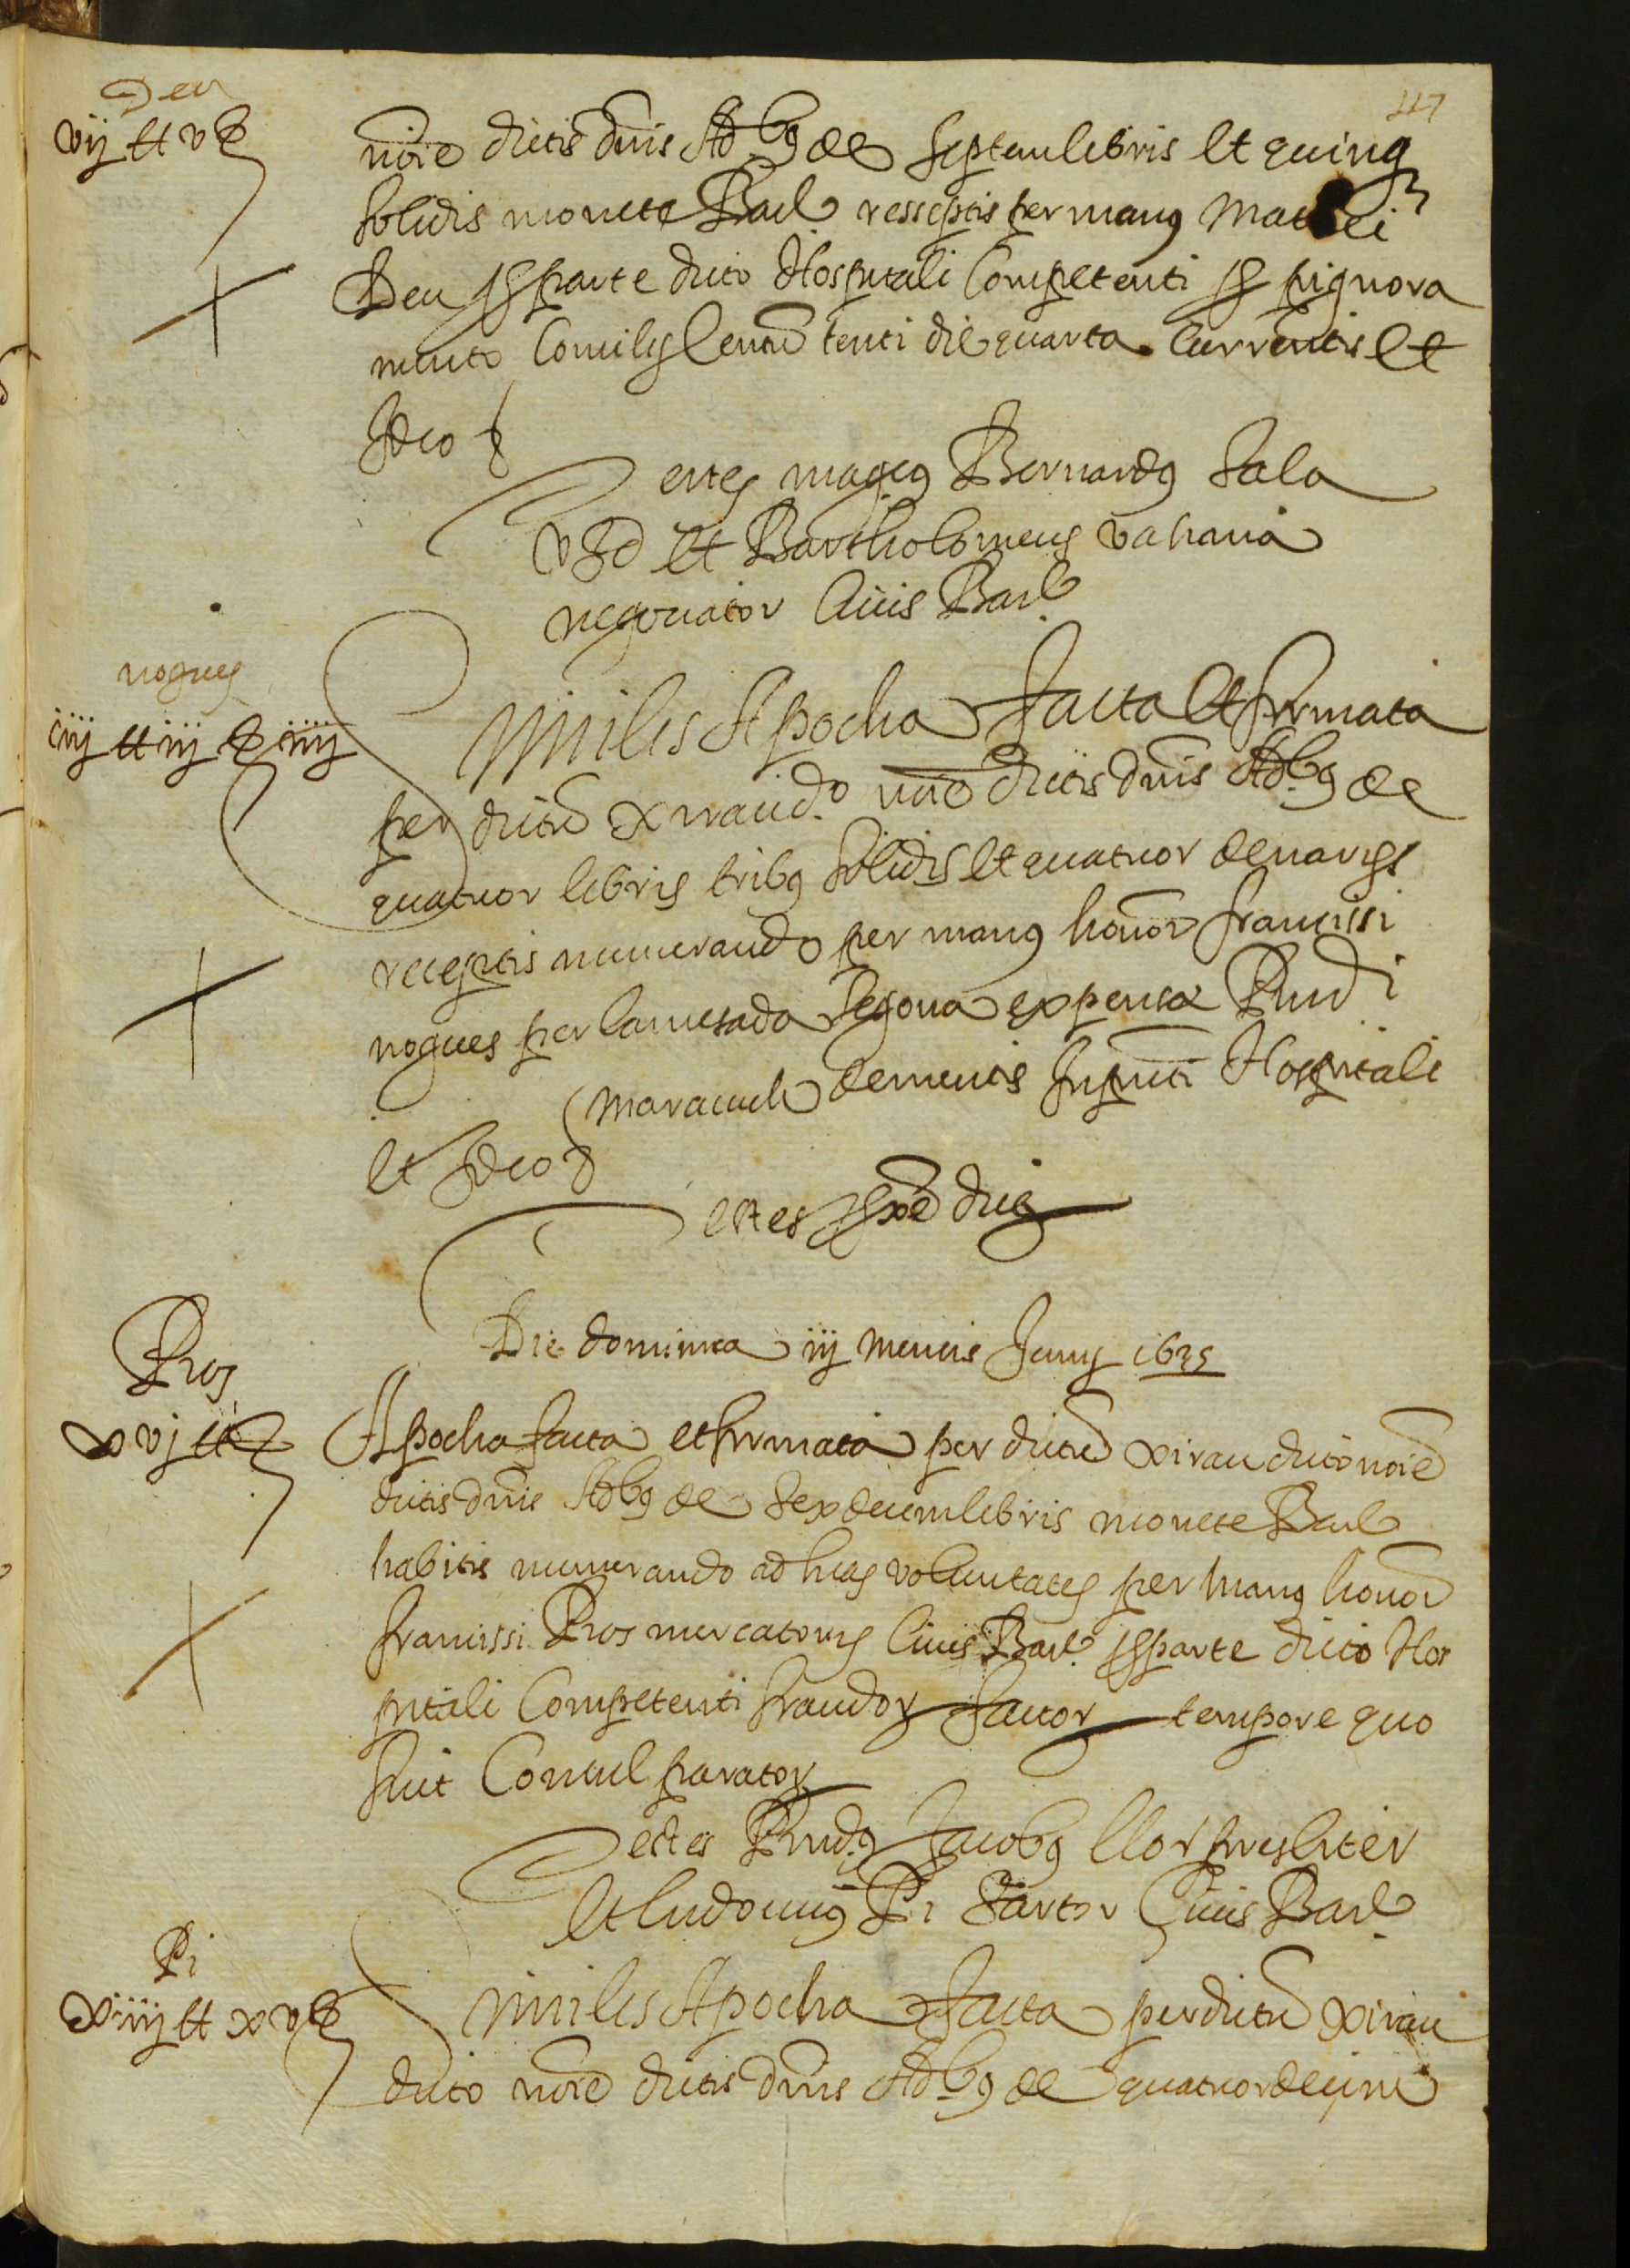 117
Deu
vij tt v s
noie dictis dnis Adbg de septem libris et quinq
solidis monete Barl resseptis per mang Mathei
Deu pro parte dicto Hospitali Competenti pro pignora
mento Concilij tenti die quarta Currentis et
Ideo
Testes magcg Bernardg Sala
VJD et Bartholomeus
negociator Civis Barl
nogues
iiij tt iij s iiij
Similis Apocha facta et firmata
per dictu xirau dco noie dictis dnis Adbg de
quatuor libris tribg solidis et quatuor denarijs
receptis numerando per mang honor francissi
nogues per la mesada segona expensa Rnd i
demencis Hospitali
et Ideo
Testes pxe dicti
Die dominica iij mencis Junij 1635
Pros
xvj tt
Apocha facta et firmata per dictu xirau dicto noie
dictis dnis Adbg de sexdecim libris monete Barl
habitis numerando ad suas voluntates per mang honor
francissi Pros mercatoris Civis Barl pro parte dicto Hos
pitali Competenti fraudor factor tempore quo
fuit Consul parator
Testes Rndg Jacobg Llor presbiter
et Ludovicus Pi Sartor Civis Barl
Pi
xiiij tt xv s
Similis Apocha facta per dictu xirau
dicto noie dictis dnis Adbg de quatuordecim